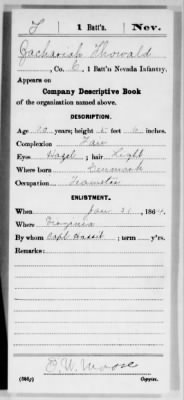 1 Batt'n. Nev.
Zachariah Thowald
, Co. E, 1 Batt'n Nevada Infantry.
Appears on
Company Descriptive Book
of the organization named above.
DESCRIPTION.
Age years; height 5 feet 6 inches.
Complexion Fair
Eyes Hazel ; hair Light
Where born Denmark
Occupation Teamster
ENLISTMENT.
When Jan 31, 1864.
Where Virginia
By whom Capt ; term y'rs.
Remarks:
Copyist.